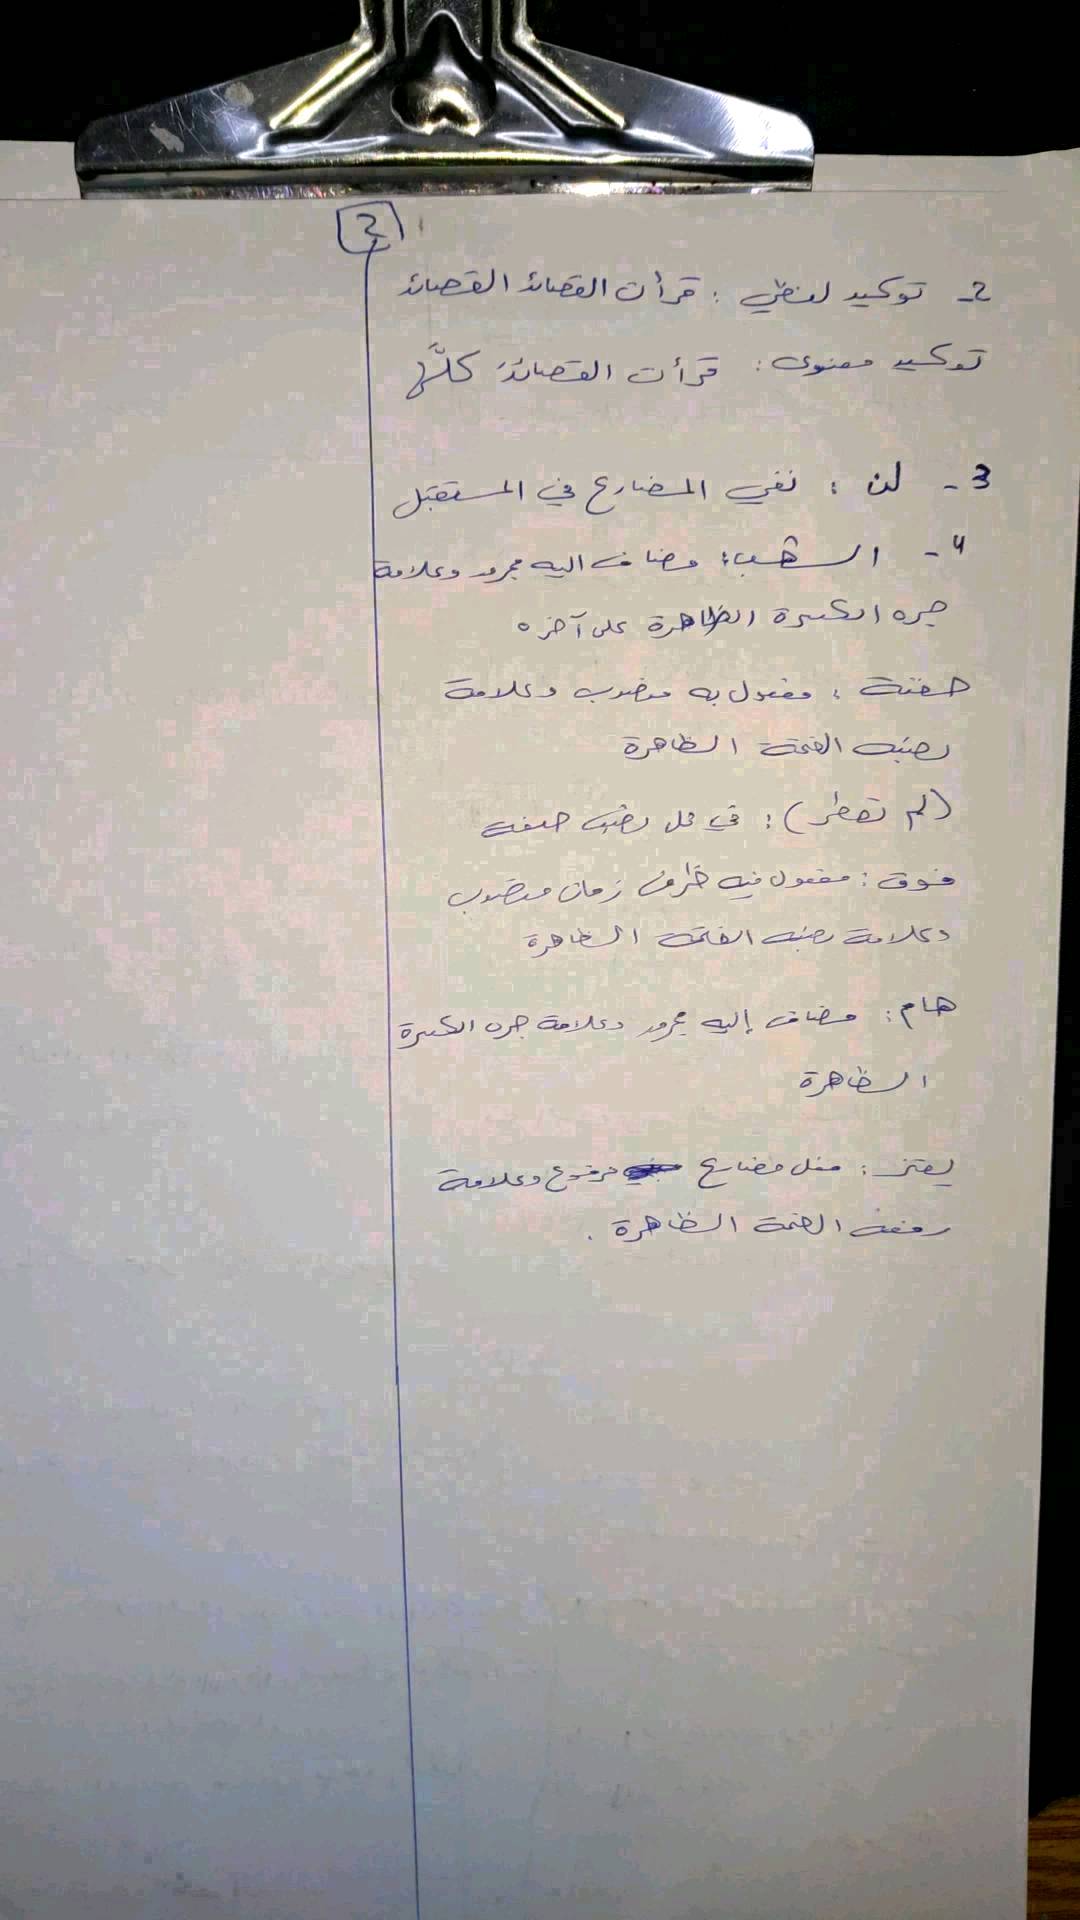 2
2- توكيد لفظي : قرأت القصائد القصائد
توكيد معنوي : قرأت القصائدَ كلَّها
3- لن : نفي المضارع في المستقبل
4- الشهب : مضاف اليه مجرور وعلامة
جره الكسرة الظاهرة على آخره
حفنة : مفعول به منصوب وعلامة
نصبه الفتحة الظاهرة
(لم تمطر) : في محل نصب صفة
فوق : مفعول فيه ظرف زمان منصوب
وعلامة نصبه الفتحة الظاهرة
هام : مضاف إليه مجرور وعلامة جره الكسرة
الظاهرة
: فعل مضارع مرفوع وعلامة
رفعه الضمة الظاهرة .